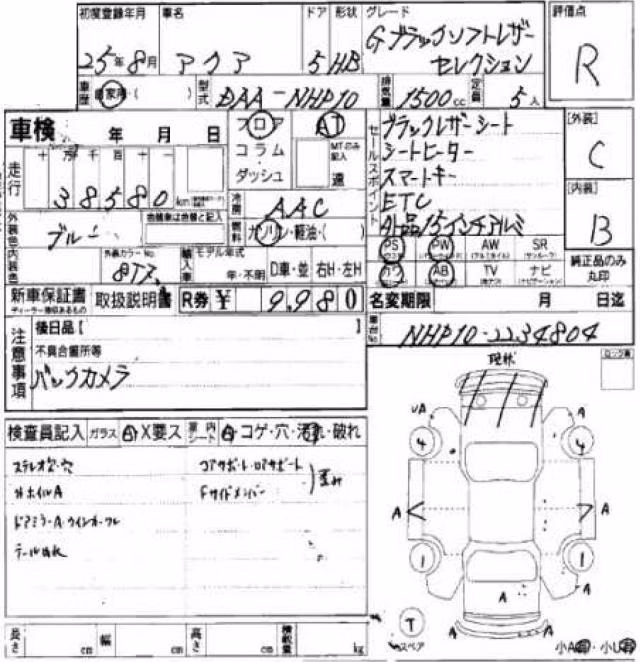 初度登録年月 車名 ドア 形状 グレード 評価点
25年8月 アクア 5 HB Gブラックソフトレザー
セレクション R
車歴 自家用・( ) 型式 DAA-NHP10 排気量 1500cc 定員 5人
車検 年 月 日 フロア AT セールスポイント ブラックレザーシート [外装]
コラム MTのみ記入 シートヒーター C
走行 十 万 千 百 十 一 ダッシュ 速 スマートキー
38580 km 冷房 AAC ETC [内装]
外装色 ブルー 色替車は色替と記入 燃料 ガソリン・軽油・( ) 社品15インチアルミ B
内装色 外装カラーNo. 8T7 輸入車 モデル年式 年・不明 D車・並 右H・左H PS PW AW SR
カワ AB TV ナビ 純正品のみ丸印
新車保証書 取扱説明書 R券 ¥ 9,980 名変期限 月 日迄
ディーラー捺印あるもの
注意事項 後日品【 】 車台No. NHP10-2234804
不具合箇所等 現状
バックカメラ
検査員記入 ガラス A X要ス 内 シート A コゲ・穴・汚れ・破れ
ステレオ欠・穴 コアサポート・ロアサポート
ホイルA Fサイドメンバー
ドアミラーA・ウインカーワレ
テール
UA A
4 4
A A
1 1
A A
A A
T スペア
長さ cm 幅 cm 高さ cm 積載量 kg 小A・小U